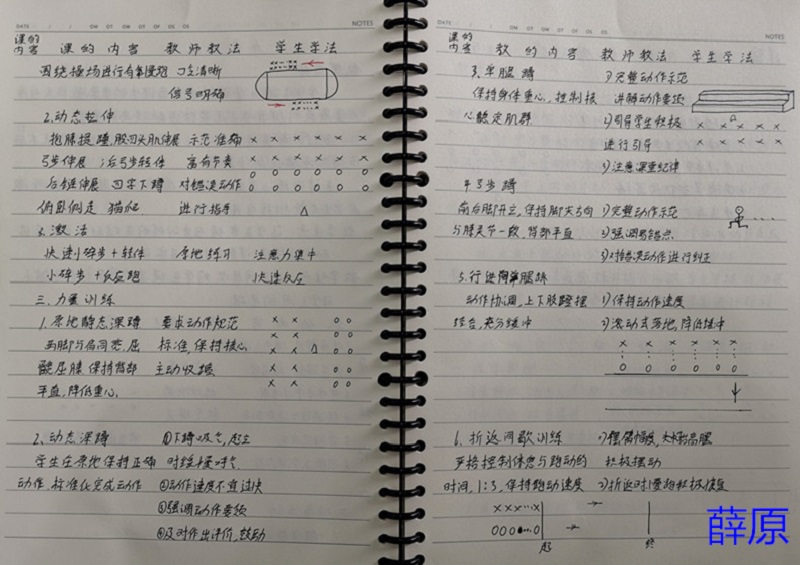 DATE
NOTES
课的内容 课的内容 教师教法 学生学法
围绕操场进行有氧慢跑 口令清晰
信号明确
2.动态拉伸
抱膝提踵,股四头肌伸展 示范准确
弓步伸展;后弓步转体 富有节奏
后链伸展 四字下蹲 对错误动作
俯卧侧走 猫爬 进行指导
3.激活
快速小碎步+转体 原地练习 注意力集中
小碎步+反应跑 快速反应
三、力量训练
1.原地静态深蹲 要求动作规范
两脚与肩同宽,屈 标准,保持核心
髋屈膝 保持背部 主动收缩
平直,降低重心.
2、动态深蹲 ①下蹲吸气,起立
学生在原地保持正确 时缓慢呼气.
动作,标准化完成动作 ②动作速度不宜过快
③强调动作要领
④及时作出评价,鼓励
DATE
NOTES
课的内容 教的内容 教师教法 学生学法
3.单腿蹲 1)完整动作示范
保持身体重心,控制核 讲解动作要领
心稳定肌群 2)引导学生积极
进行引导
3)注意课堂纪律
4.弓步蹲
前后脚开立,保持脚尖方向 1)完整动作示范
与膝关节一致,背部平直 2)强调易错点
3)对错误动作进行纠正
5.行进间单腿跳
动作协调,上下肢蹬摆 1)保持动作速度
结合,充分缓冲 2)滚动式落地,降低缓冲
6.折返间歇训练 1)摆臂幅度,大小步高腿
严格控制休息与跑动的 积极摆动
时间,1:3,保持跑动速度 2)折返时慢跑积极恢复
起 终
薛原